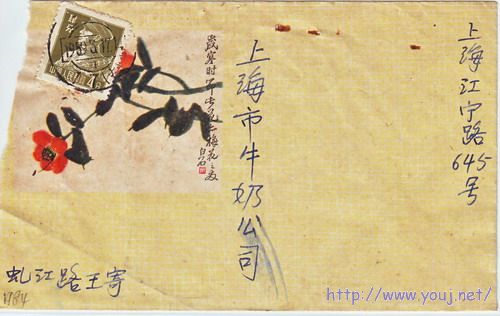 上海江宁路
645号
上海市牛奶公司
歲寒时
梅花之友
白石
虬江路王寄
http://www.youj.net/